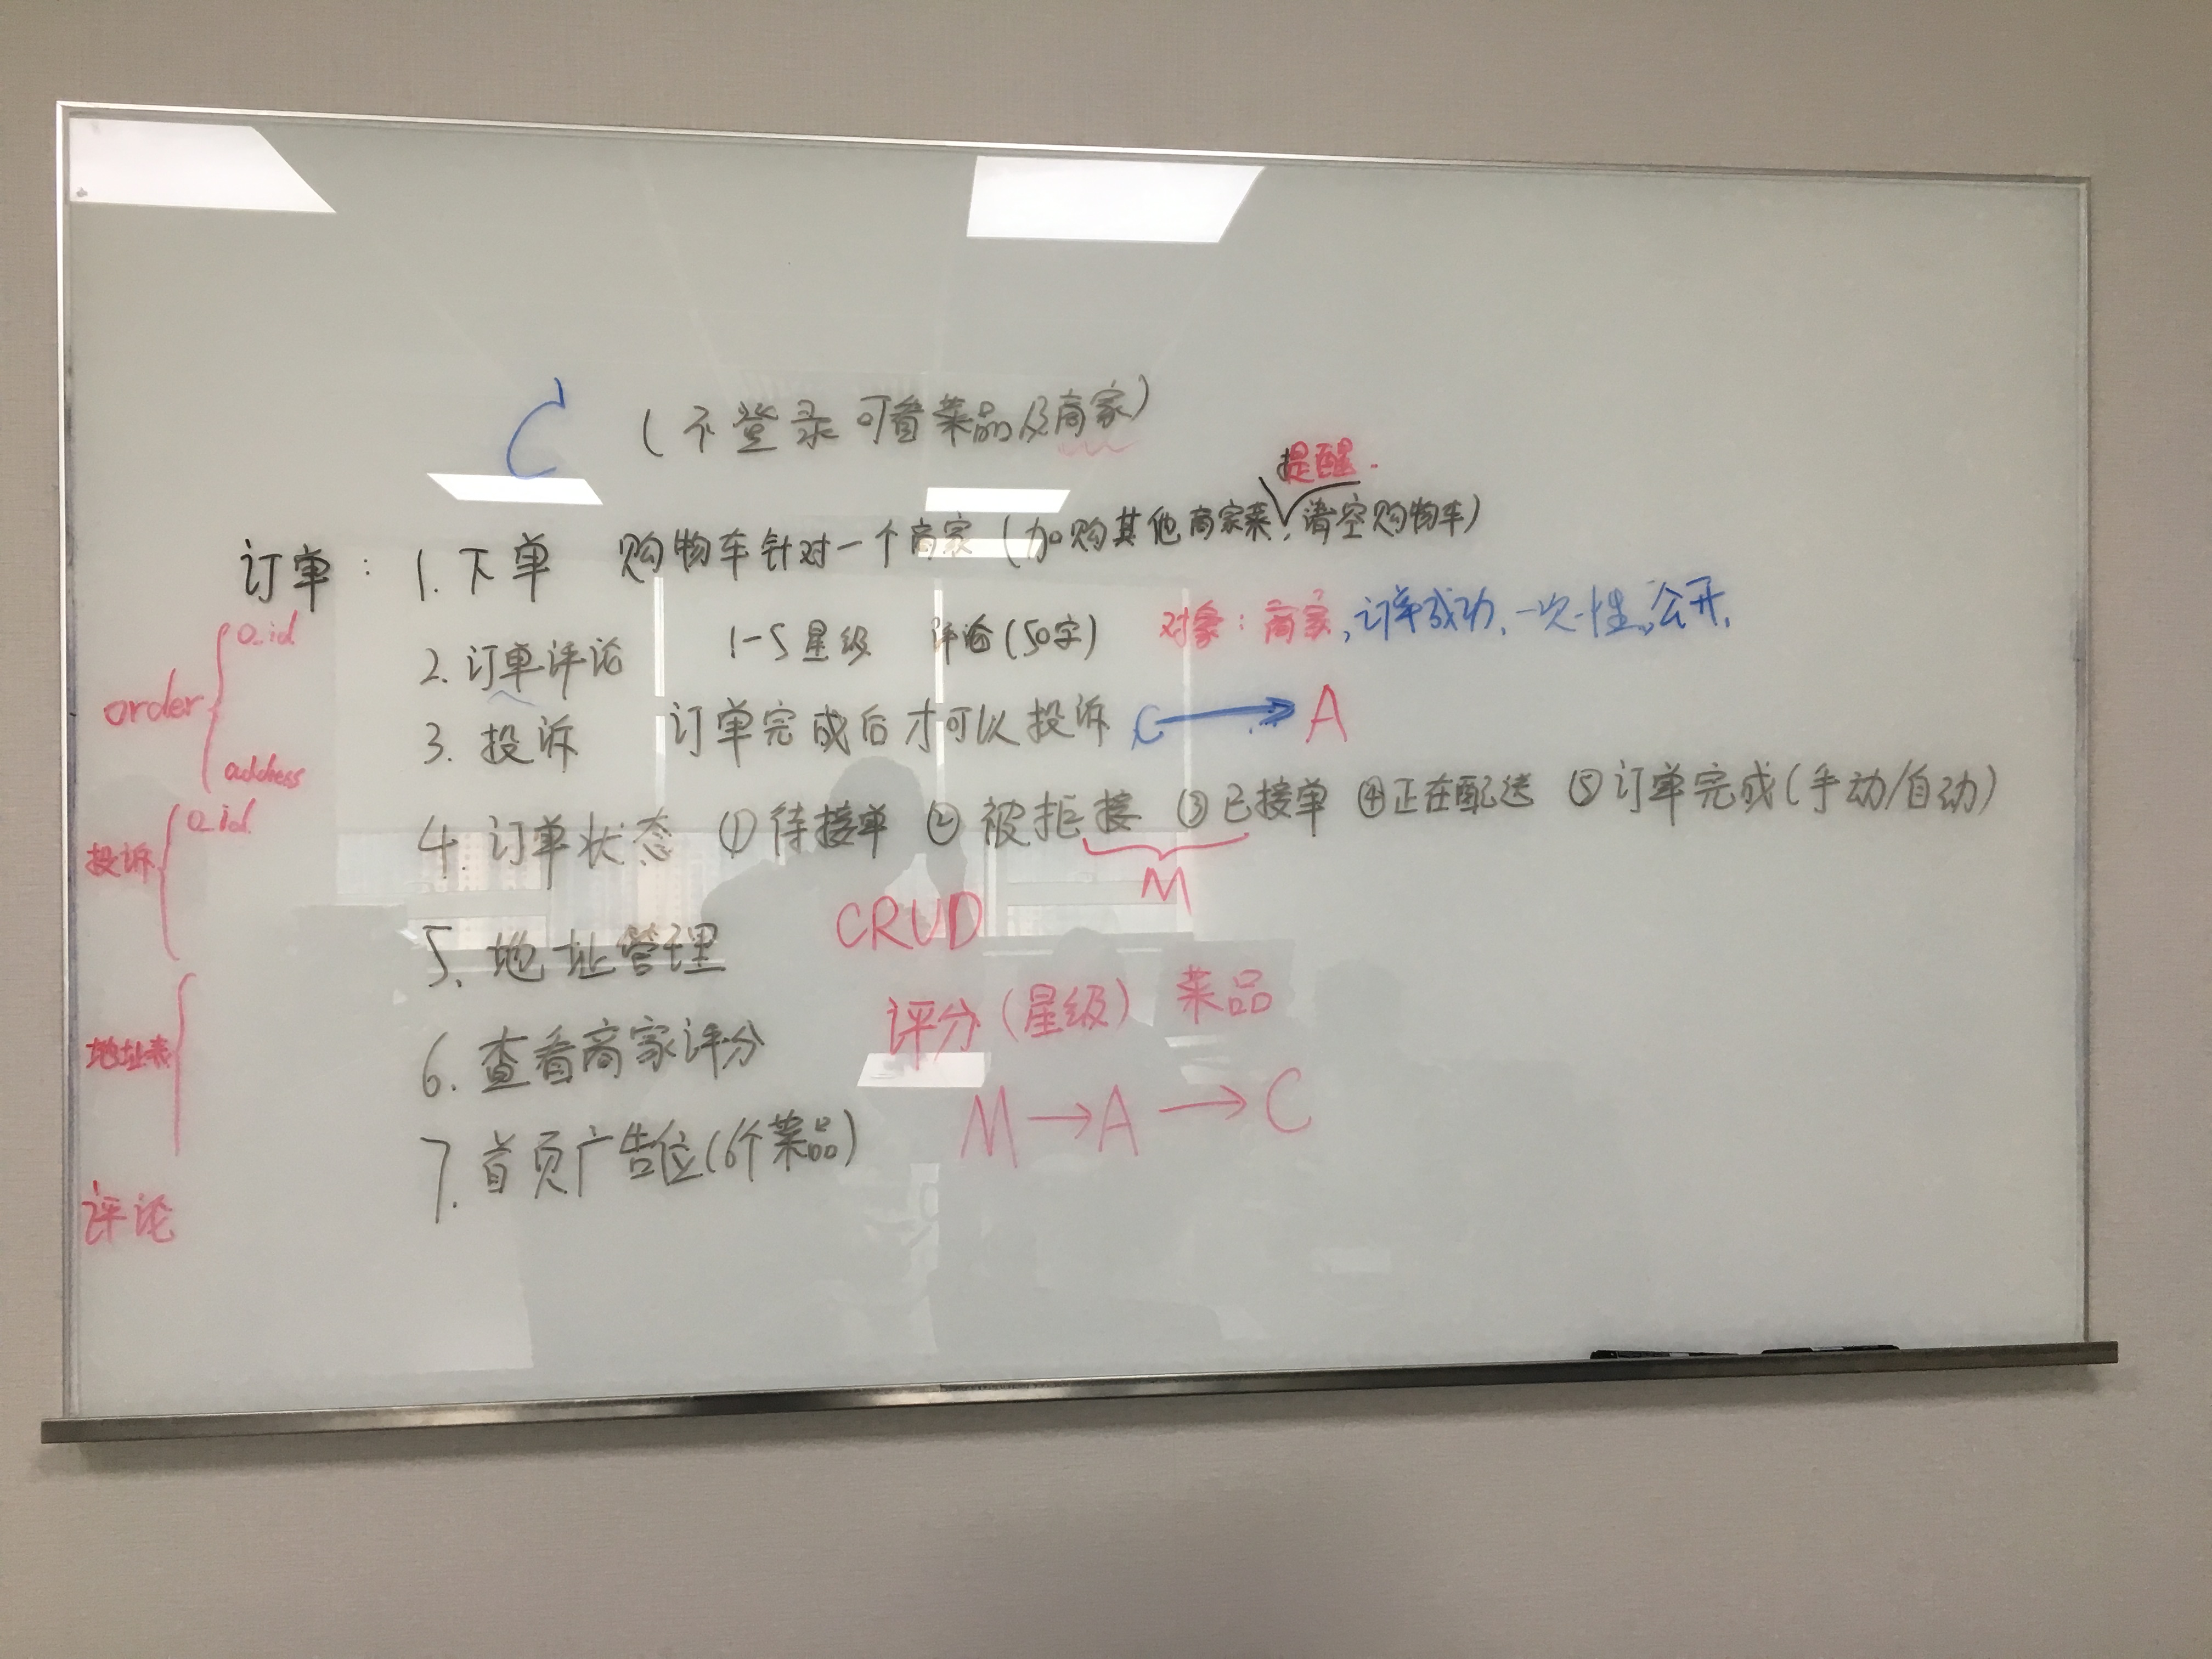 C （不登录可看菜品及商家）
提醒.
订单： 1. 下单 购物车针对一个商家（加购其他商家菜，清空购物车）
2. 订单评论 1-5星级 评论（50字） 对象：商家，订单成功、一次性、公开.
3. 投诉 订单完成后才可以投诉 C → A
4. 订单状态 ① 待接单 ② 被拒接 ③ 已接单 ④ 正在配送 ⑤ 订单完成（手动/自动）
M
5. 地址管理 CRUD
6. 查看商家评分 评分（星级） 菜品
7. 首页广告位（6个菜品） M → A → C
o_id
order
address
o_id
投诉
地址表
评论